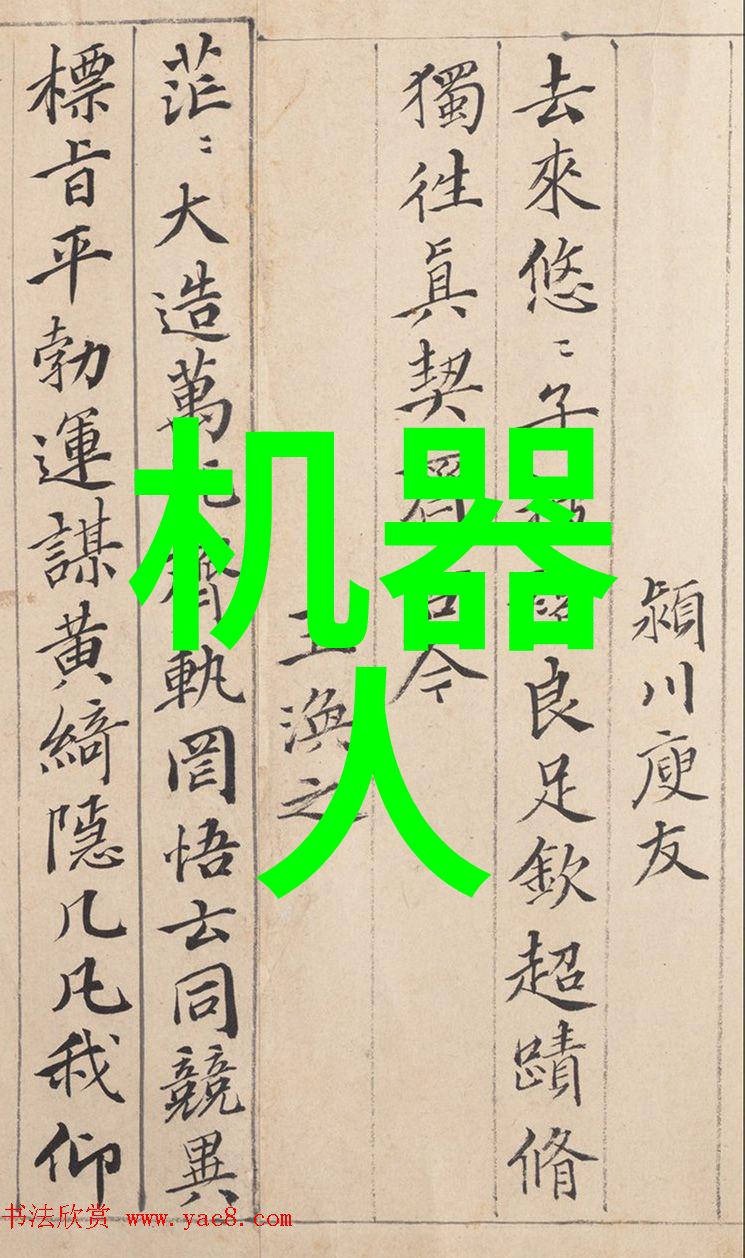 潁川庾友
去來悠〻子良足欽超蹟脩
獨往眞契齊古今
王渙之
茫〻大造萬化齊軌罔悟玄同競異
標旨平勃運謀黃綺隱几凡我仰
机器
人
书法欣赏 www.yac8.com